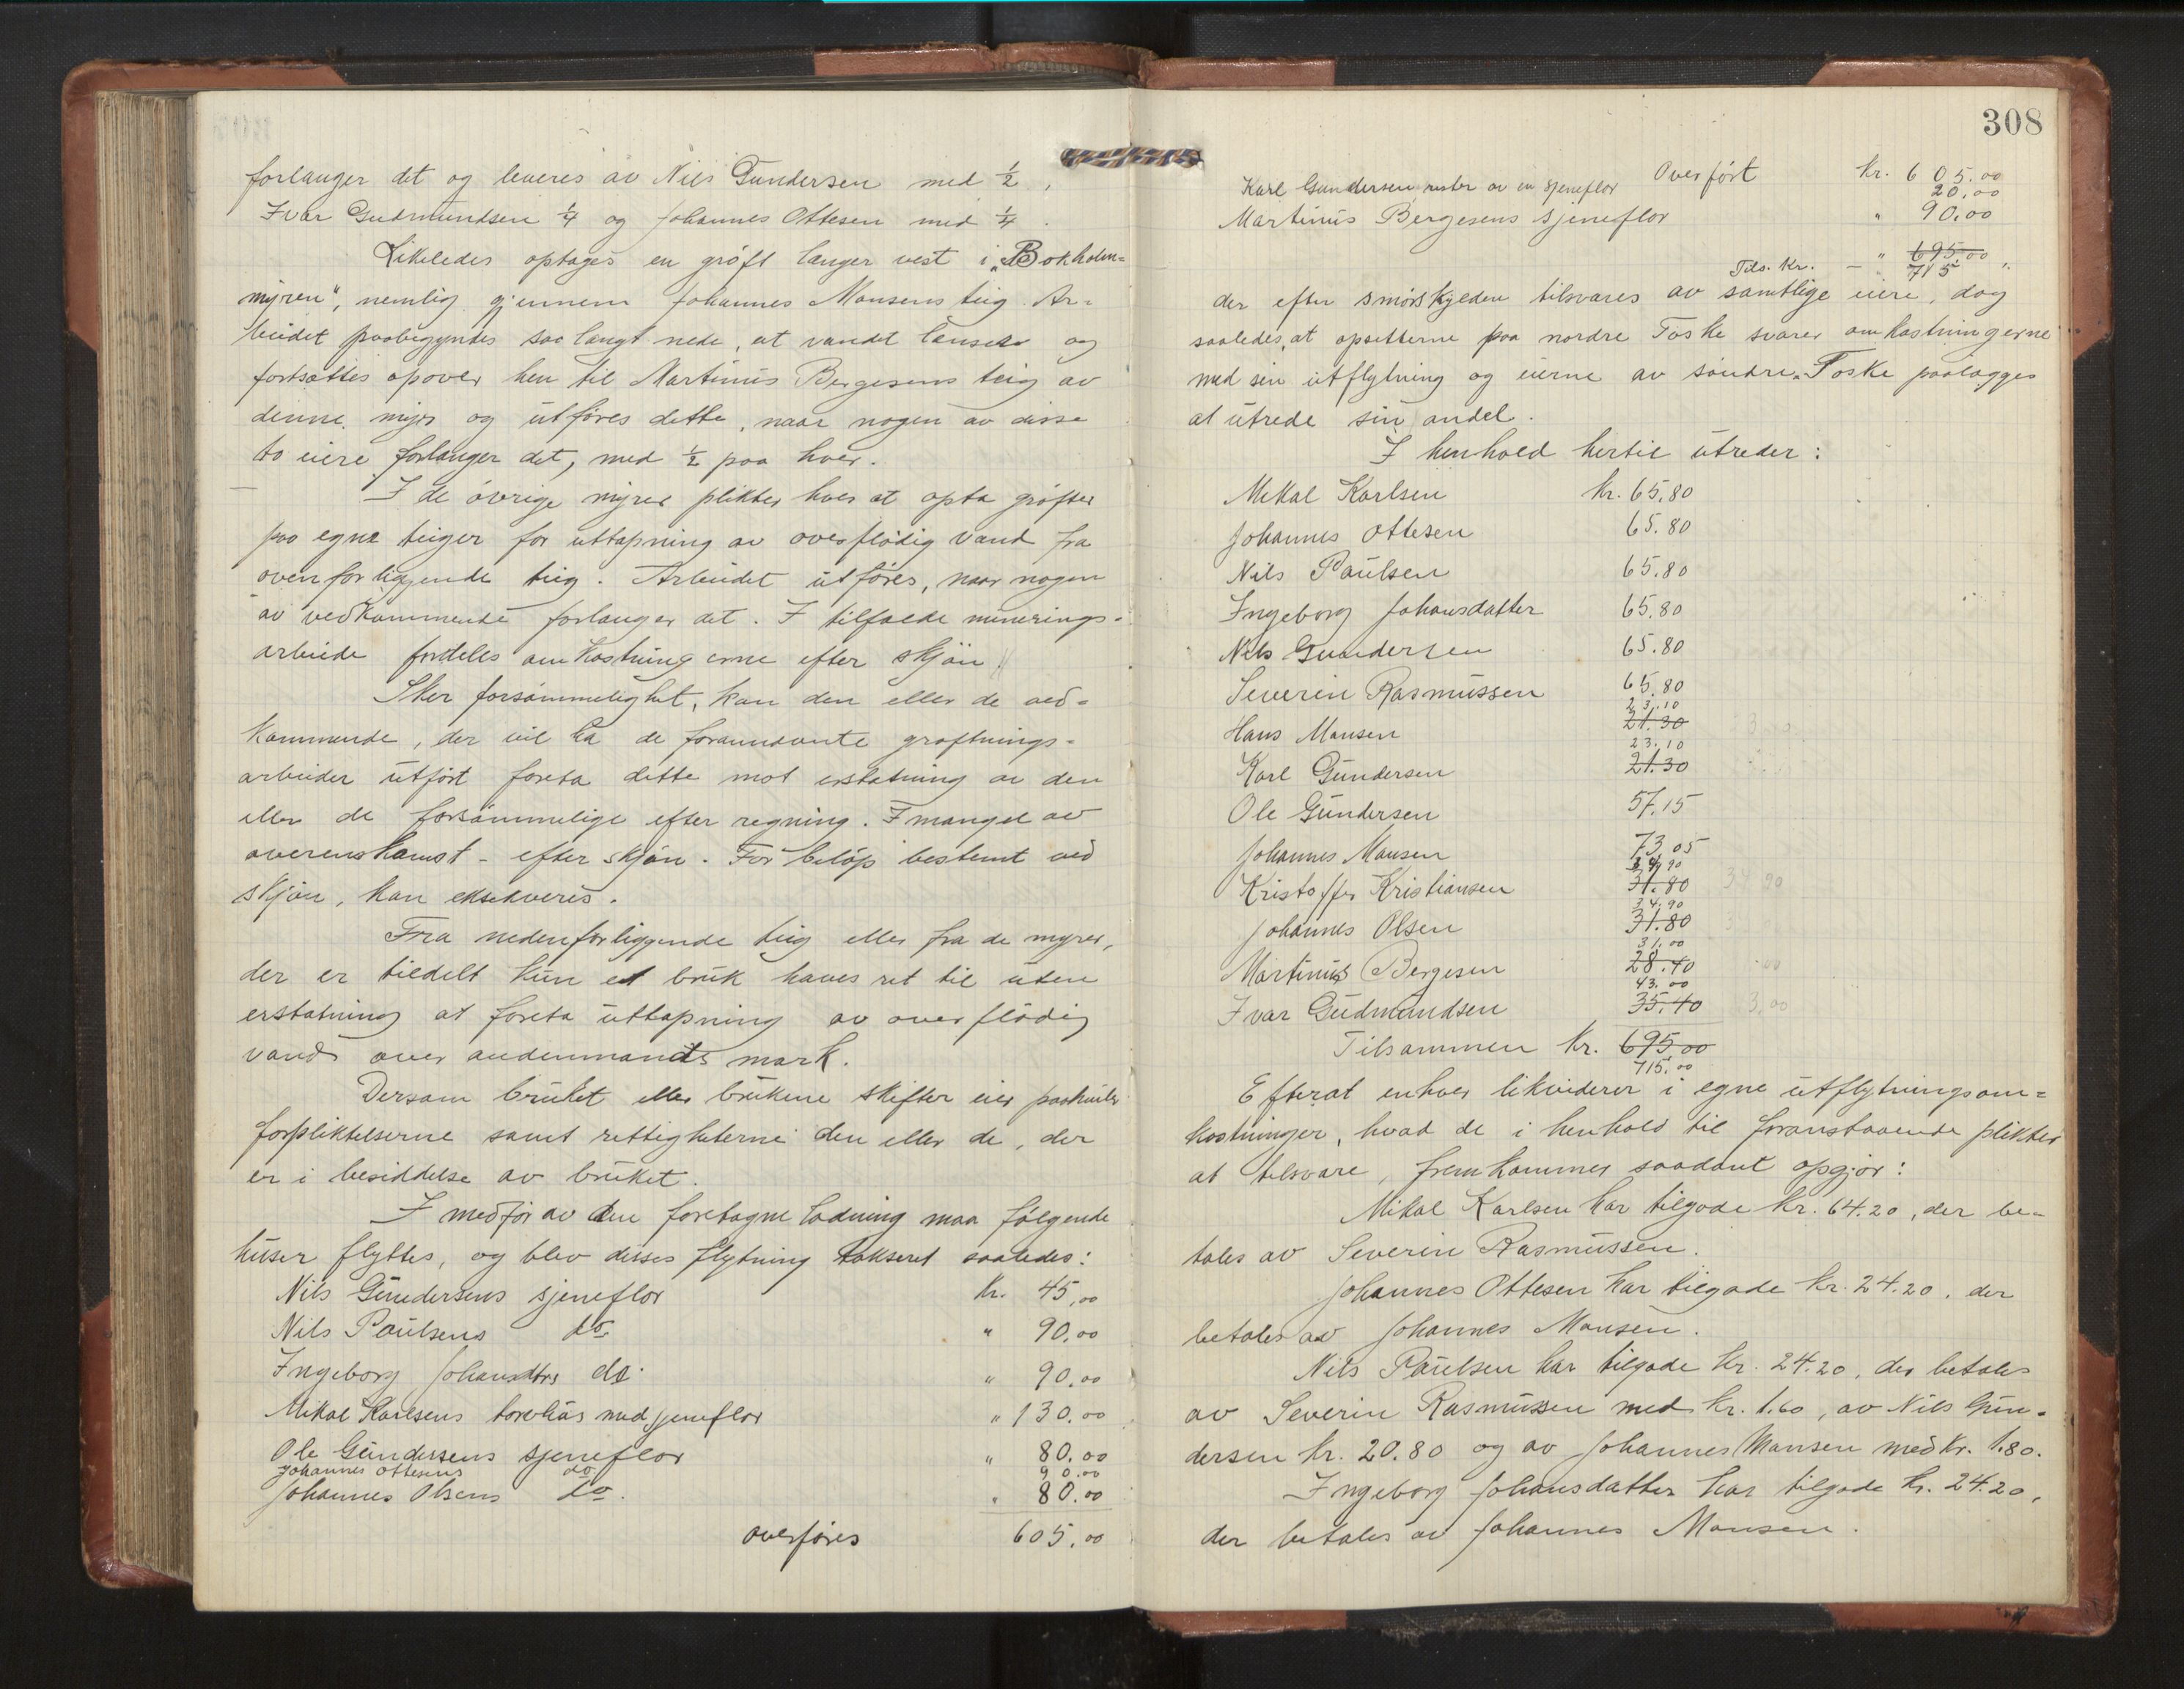 forlanger det og leveres av Nils Gundersen med ½,
Ivar Gudmundsen ¼ og Johannes Ottesen med ¼.
Likeledes optages en grøft længer vest i „Bokholm=
myren", nemlig gjennem Johannes Monsens teig. Ar=
beidet paabegyndes saa langt nede, at vandet lænses og
fortsættes opover hen til Martinus Bergesens teig av
denne myr og utføres dette, naar nogen av disse
to eiere forlanger det, med ½ paa hver.
I de øvrige myrer plikter hver at opta grøfter
paa egne teiger for uttapning av overflødig vand fra
ovenforliggende teig. Arbeidet utføres, naar nogen
av vedkommende forlanger det. I tilfælde minerings=
arbeide fordeles omkostningerne efter skjøn.
Sker forsømmelighet, kan den eller de ved=
kommende, der vil ha de forannævnte grøftnings=
arbeider utført foreta dette mot erstatning av den
eller de forsømmelige efter regning. I mangel av
overenskomst - efter skjøn. For beløp bestemt ved
skjøn, kan eksekveres.
Fra nedenforliggende teig eller fra de myrer,
der er tildelt kun et bruk haves ret til uten
erstatning at foreta uttapning av overflødig
vand over andenmands mark.
Dersom bruket eller brukene skifter eier paahviler
forpliktelserne samt rettigheterne den eller de, der
er i besiddelse av bruket.
I medfør av den foretagne lodning maa følgende
huser flyttes, og blev disses flytning takseret saaledes:
Nils Gundersens sjeneflor kr. 45,00
Nils Paulsens do. " 90.00
Ingeborg Johansdtrs do. " 90.00
Mikal Karlsens torvhus med sjeneflor " 130.00
Ole Gundersens sjeneflor " 80.00
Johannes Ottesens do 90.00
Johannes Olsens do. " 80.00
overføres 605.00
308
Overført kr. 605.00
Karl Gundersen, rester av en sjeneflor 20.00
Martinus Bergesens sjeneflor " 90.00
" 695.00
Tils. Kr. — " 715 "
der efter smørskylden tilsvares av samtlige eiere, dog
saaledes, at opsitterne paa nordre Toske svarer omkostningerne
med sin utflytning og eierne av søndre Toske paalægges
at utrede sin andel.
I henhold hertil utreder:
Mikal Karlsen kr. 65,80
Johannes Ottesen 65.80
Nils Paulsen 65.80
Ingeborg Johansdatter 65.80
Nils Gundersen 65.80
Severin Rasmussen 65.80
23.10
Hans Monsen 21.30
23.10
Karl Gundersen 21.30
Ole Gundersen 57.15
Johannes Monsen 73,05
34,90
Kristoffer Kristiansen 31.80
34.90
Johannes Olsen 31.80
31.00
Martinus Bergesen 28.40
43.00
Ivar Gudmundsen 35.40
Tilsammen kr. 695.00
715.00
Efterat enhver likviderer i egne utflytningsom=
kostninger, hvad de i henhold til foranstaaende plikter
at tilsvare, fremkommer saadant opgjør:
Mikal Karlsen har tilgode kr. 64.20, der be=
tales av Severin Rasmussen.
Johannes Ottesen har tilgode kr. 24.20, der
betales av Johannes Monsen.
Nils Paulsen har tilgode kr. 24.20, der betales
av Severin Rasmussen med kr. 1.60, av Nils Gun=
dersen kr. 20.80 og av Johannes Monsen med kr. 1.80.
Ingeborg Johansdatter har tilgode kr. 24.20,
der betales av Johannes Monsen.